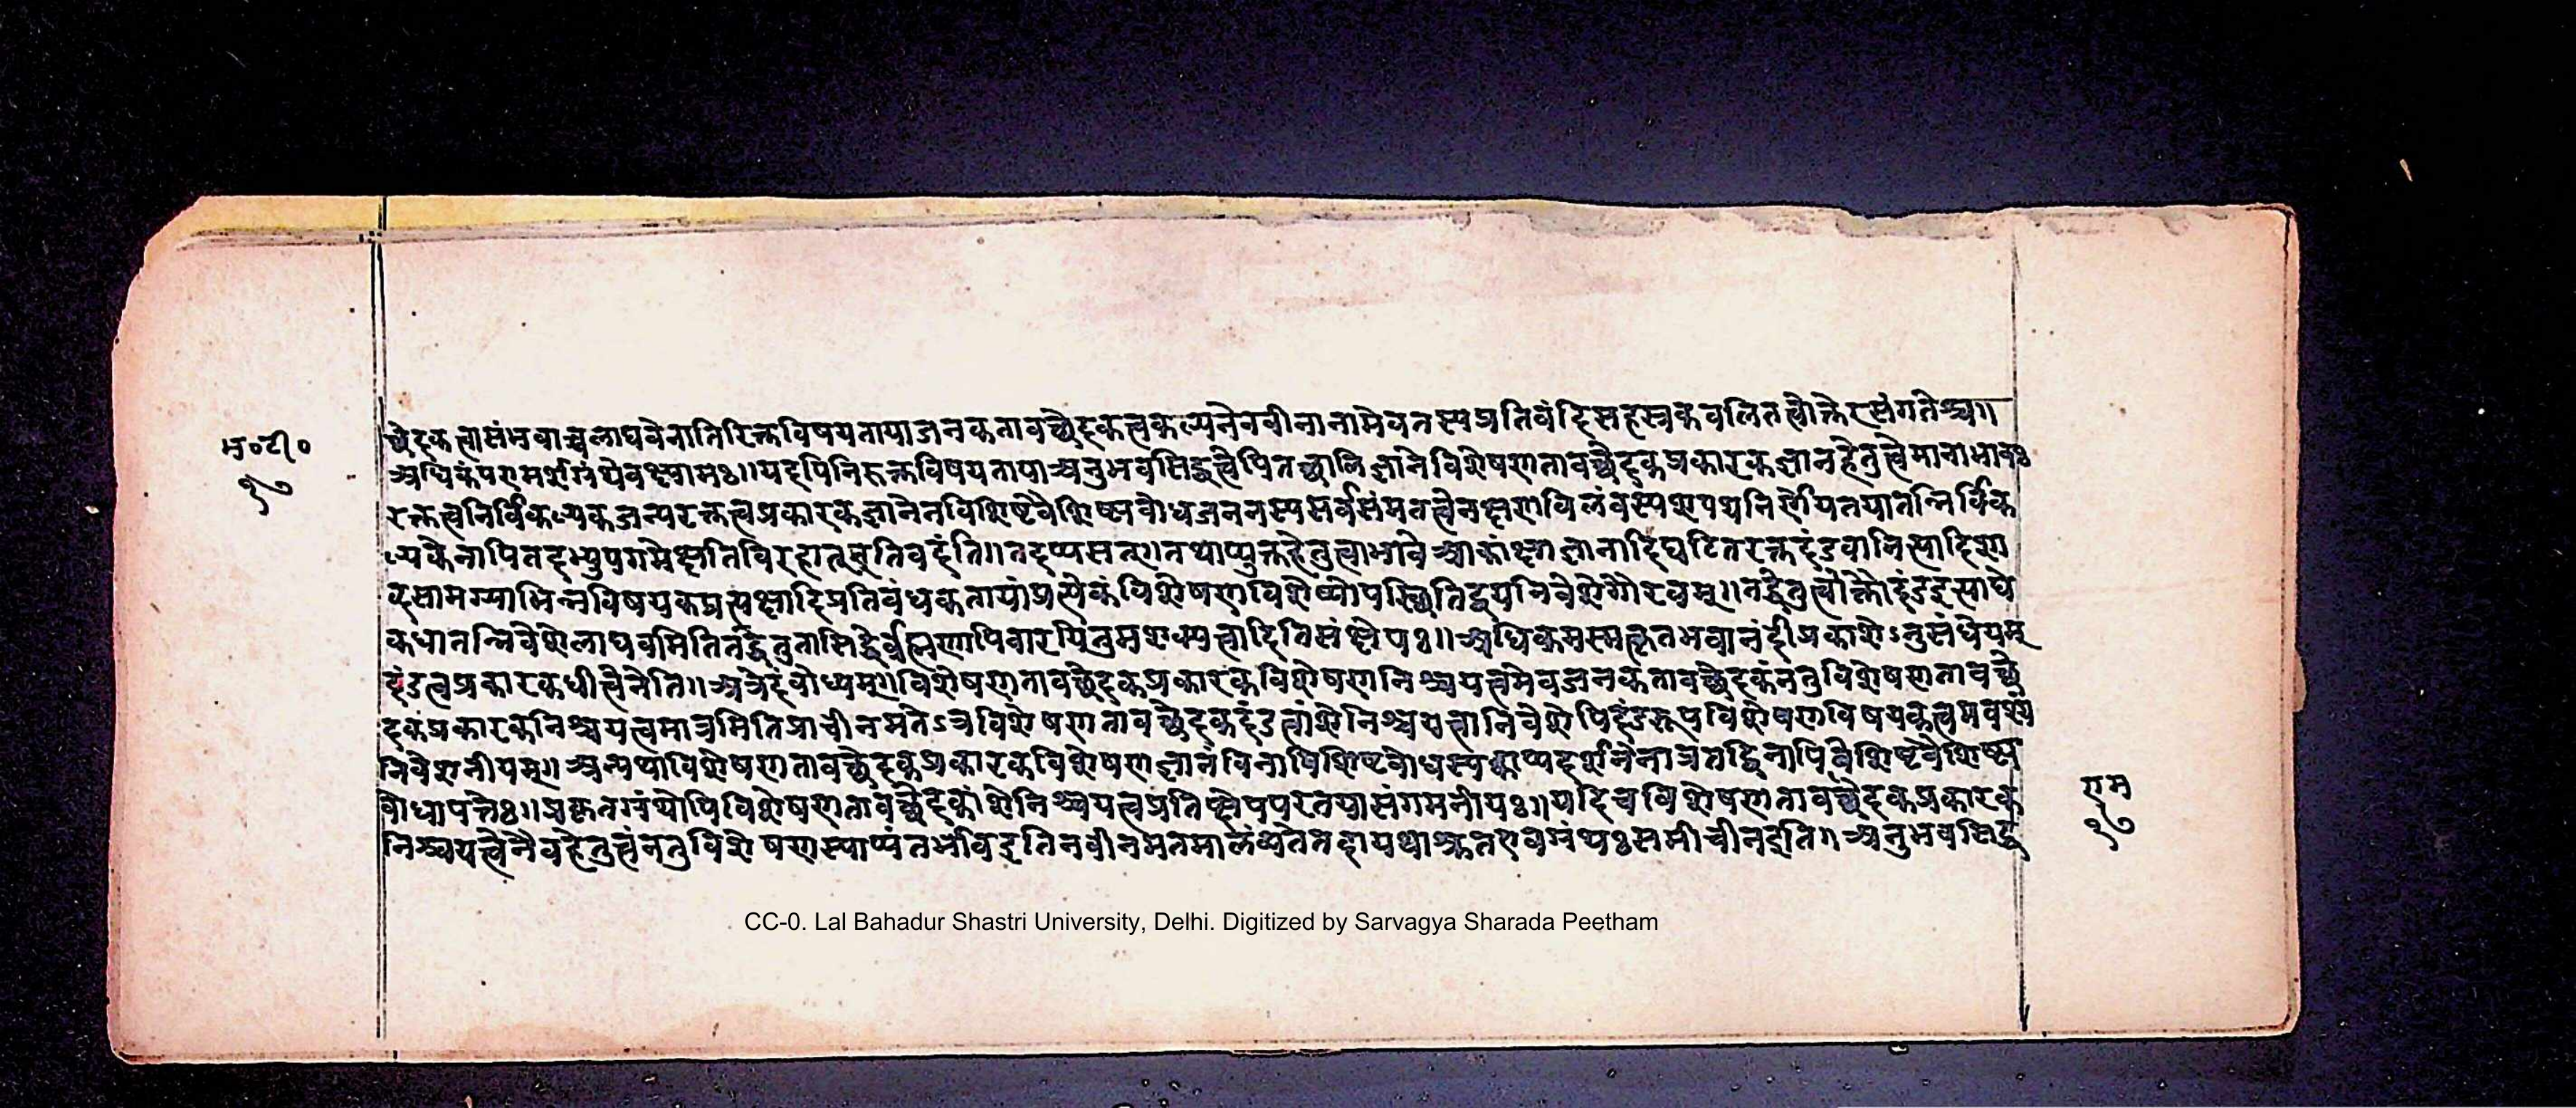 भ॰टी॰
१७
च्छेदकत्वासंभवाच्चलाघवेनातिरिक्तविषयतायाजनकतावच्छेदकत्वकल्पनेनवीनानामेवतस्यप्रतिवंदिसहस्रकवलितत्वोक्तेरसंगतेश्च॥
अधिकंपरामर्शग्रंथेवक्ष्यामः॥यदपिनिरुक्तविषयतायाअनुभवसिद्धत्वेपितच्छालिज्ञानेविशेषणतावच्छेदकप्रकारकज्ञानहेतुत्वेमानाभावः
रक्तत्वनिर्विकल्पकजन्यरक्तत्वप्रकारकज्ञानेनविशिष्टवैशिष्ट्यबोधजननस्यसर्वसंमतत्वेनक्षणविलंवस्यशपथनिर्णेयतयातन्निर्विक
ल्पकेनापितदभ्युपगमेक्षतिविरहात्इतिवदंति॥तदप्यसत्॥तथाप्युक्तहेतुत्वाभावेआकांक्षाज्ञानादिघटितरक्तदंडवानित्यादिशा
ब्दसामग्र्याभिन्नविषयकप्रत्यक्षादिप्रतिवंधकतायांप्रत्येकंविशेषणविशेष्योपस्थितिद्वयनिवेशेगौरवम्॥तद्धेतुत्वोक्तौदंडइत्याद्ये
कधीतन्निवेशेलाघवमितितद्धेतुतासिद्धेर्वृहस्पतिनापिवारयितुमशक्यत्वादितिसंक्षेपः॥अधिकमस्मत्कृतभवानंदीप्रकाशेऽनुसंधेयम्
दंडत्वप्रकारकधीत्वेनेति॥अत्रेदंवोध्यम्॥विशेषणतावच्छेदकप्रकारकविशेषणनिश्चयत्वमेवजनकतावच्छेदकंनतुविशेषणतावच्छे
दकप्रकारकनिश्चयत्वमात्रमितिप्राचीनमतेऽत्रविशेषणतावच्छेदकदंडत्वांशेनिश्चयत्वानिवेशेपिदंडरूपविशेषणविषयकत्वमवश्यं
निवेशनीयम्॥अन्यथाविशेषणतावच्छेदकप्रकारकविशेषणज्ञानंविनाविशिष्टबोधस्यक्वाप्यदर्शनेनात्रतद्विनापिवैशिष्टवैशिष्ट्य
वोधापत्तेः॥प्रकृतग्रंथोपिविशेषणतावच्छेदकांशेनिश्चयत्वप्रतिक्षेपपरतयासंगमनीयः॥यदिचविशेषणतावच्छेदकप्रकारक
निश्चयत्वेनैवहेतुत्वंनतुविशेषणस्याप्यंतर्भावइतिनवीनमतमालंव्यतेतदायथाश्रुतएवग्रंथःसमीचीनइति॥अनुभवसिद्ध
राम
१७
CC-0. Lal Bahadur Shastri University, Delhi. Digitized by Sarvagya Sharada Peetham